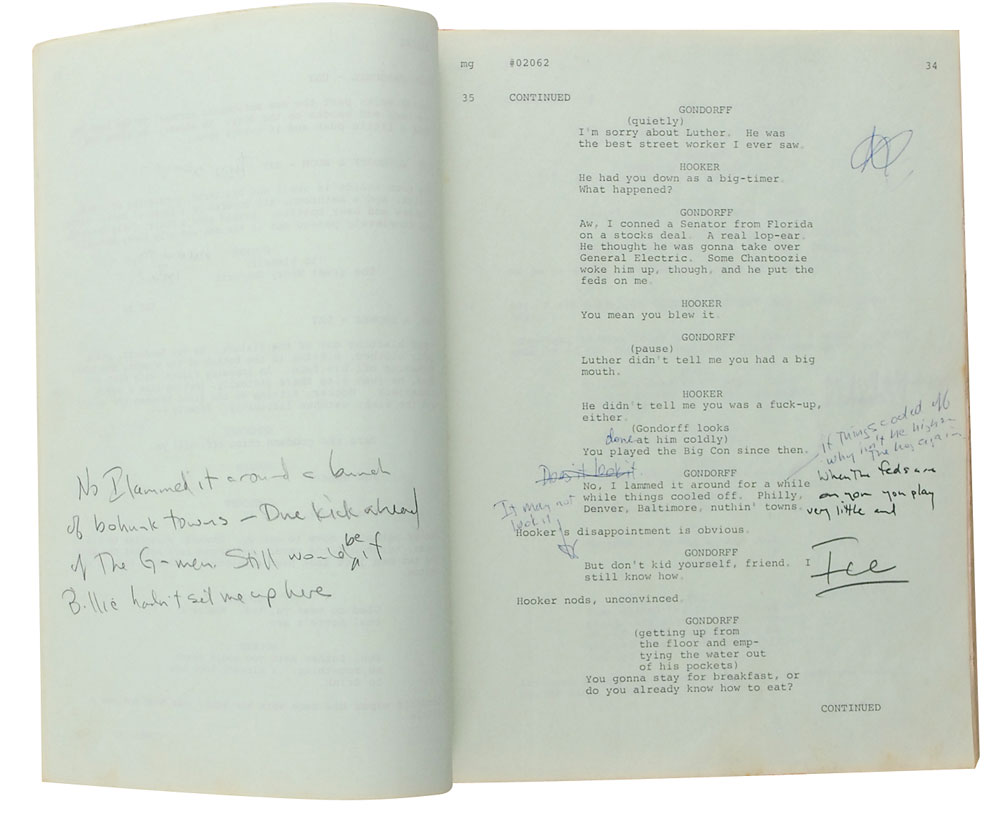 No I lammed it around a bunch
of bohunk towns — One kick ahead
of The G-men. Still would be if
Billie hadn't set me up here
mg #02062 34
35 CONTINUED
GONDORFF
(quietly)
I'm sorry about Luther. He was
the best street worker I ever saw.
HOOKER
He had you down as a big-timer.
What happened?
GONDORFF
Aw, I conned a Senator from Florida
on a stocks deal. A real lop-ear.
He thought he was gonna take over
General Electric. Some Chantoozie
woke him up, though, and he put the
feds on me.
HOOKER
You mean you blew it.
GONDORFF
(pause)
Luther didn't tell me you had a big
mouth.
HOOKER
He didn't tell me you was a fuck-up,
either.
(Gondorff looks
at him coldly)
done
You played the Big Con since then.
If Things cooled off
why isn't he
again
Doesn't look it.
GONDORFF
No, I lammed it around for a while
while things cooled off. Philly,
Denver, Baltimore, nuthin' towns.
When The feds are
on you you play
very little and
Ice
It may not
look it
Hooker's disappointment is obvious.
GONDORFF
But don't kid yourself, friend. I
still know how.
Hooker nods, unconvinced.
GONDORFF
(getting up from
the floor and emp-
tying the water out
of his pockets)
You gonna stay for breakfast, or
do you already know how to eat?
CONTINUED